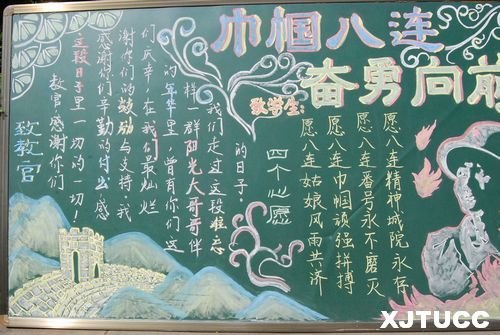 巾帼八连
奋勇向前
致教官
教官感谢你们
这段日子里一切的一切!
感谢你们辛勤的付出感
谢你们的鼓励与支持。我
们庆幸,在我们最灿烂
的年华里,曾有你们这
样一群阳光大哥哥伴
我们走过这段难忘
的日子。
致学生:
四个心愿
愿八连姑娘风雨共济
愿八连巾帼顽强拼搏
愿八连番号永不磨灭
愿八连精神城院永存
XJTUCC